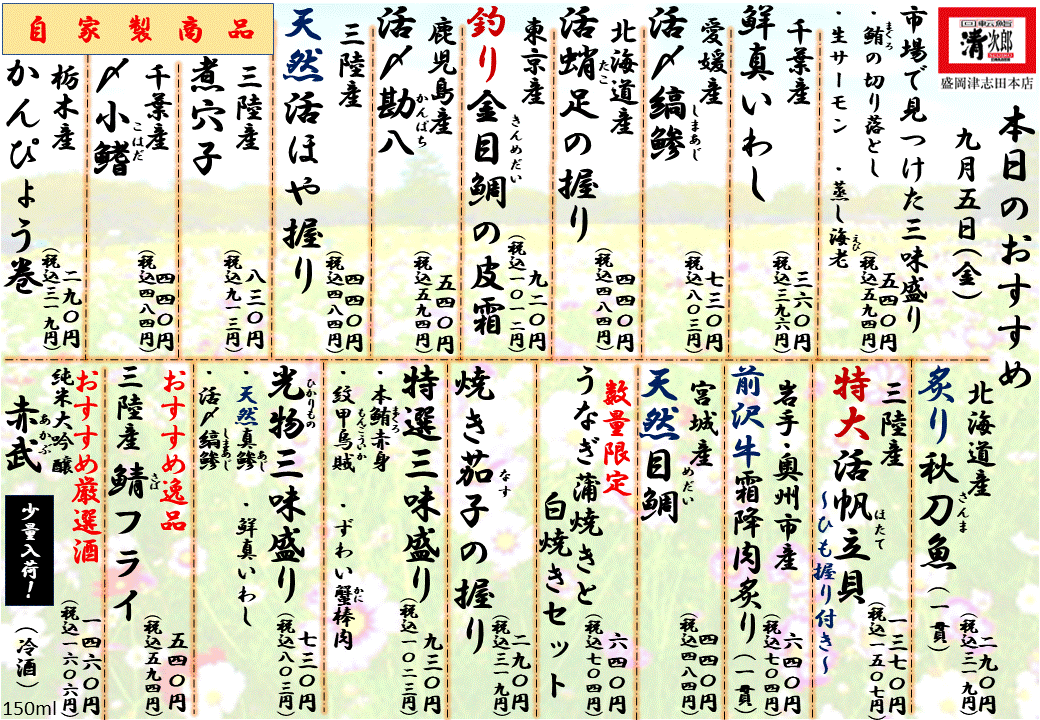 回転鮨
清次郎
盛岡津志田本店
本日のおすすめ
九月五日(金)
市場で見つけた三味盛り
・鮪の切り落とし
まぐろ
・生サーモン ・蒸し海老
えび
五四〇円
(税込五九四円)
千葉産
鮮真いわし
三六〇円
(税込三九六円)
愛媛産
活〆縞鯵
しまあじ
七三〇円
(税込八〇三円)
北海道産
活蛸足の握り
たこ
四四〇円
(税込四八四円)
東京産
釣り金目鯛の皮霜
きんめだい
九二〇円
(税込一〇一二円)
鹿児島産
活〆勘八
かんぱち
五四〇円
(税込五九四円)
三陸産
天然活ほや握り
四四〇円
(税込四八四円)
自家製商品
三陸産
煮穴子
八三〇円
(税込九一三円)
千葉産
〆小鰭
こはだ
四四〇円
(税込四八四円)
栃木産
かんぴょう巻
二九〇円
(税込三一九円)
北海道産
炙り秋刀魚(一貫)
さんま
二九〇円
(税込三一九円)
三陸産
特大活帆立貝
ほたて
~ひも握り付き~
一三七〇円
(税込一五〇七円)
岩手・奥州市産
前沢牛霜降肉炙り(一貫)
六四〇円
(税込七〇四円)
宮城産
天然目鯛
めだい
四四〇円
(税込四八四円)
数量限定
うなぎ蒲焼きと
白焼きセット
六四〇円
(税込七〇四円)
焼き茄子の握り
なす
二九〇円
(税込三一九円)
特選三味盛り
・本鮪赤身
まぐろ
・紋甲烏賊 ・ずわい蟹棒肉
もんこういか
かに
九三〇円
(税込一〇二三円)
光物三味盛り
ひかりもの
・天然真鯵 ・鮮真いわし
あじ
・活〆縞鯵
しまあじ
七三〇円
(税込八〇三円)
おすすめ逸品
三陸産 鯖フライ
さば
五四〇円
(税込五九四円)
おすすめ厳選酒
純米大吟醸
赤武
あかぶ
少量入荷!
(冷酒)
一四六〇円
(税込一六〇六円)
150ml